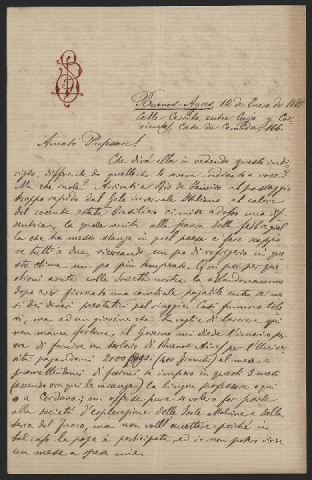 Buenos Ayres, 12 de Enero de 1880
Calle Cerrito, entre Cuyo y Cor-
rientes, Casa de Comida, 166.
Amato Professore!
Che dirà ella in vedendo questo indi-
rizzo, differente da quello che le avevo indicato a voce?
Ma che vuole? Arrivati a Rio de Janeiro il passaggio
troppo rapido dal Gelo invernale Italiano al calore
del cocente estate Brasiliano ci mise addosso una dis-
senteria, la quale unita alla paura della febbre gial-
la che ha messo stanza in quel paese ci fece scappa-
re tutti e due, ricercando un po' di refrigerio in que-
sto clima un po' più temperato. E fu poi per que-
stioni avute colla società nostra, la abbandonammo
dopo aver firmato le cambiali pagabili entro sei me-
si dei denari prestatici pel viaggio. Così fummo libe-
ri, ma ad un giovine che ha voglia di lavorare qui
non manca fortuna, il Governo mi diede l'incarico per
ora di fornire un erbario di Buenos Aires per l'Univer-
sità pagandomi 2000 (400 franchi) al mese e
promettendomi di farmi se imparo in questi 3 mesi
(essendo ora qui le vacanze) la lingua professore o qui
o a Cordova; mi offerse pure se volevo far parte
alla società d'esplorazione delle Isole Maluine e della
Terra del Fuoco, ma non volli accettare perchè in
tal caso la paga è posticipata ed io non potevo vivere
un mese a spese mie.